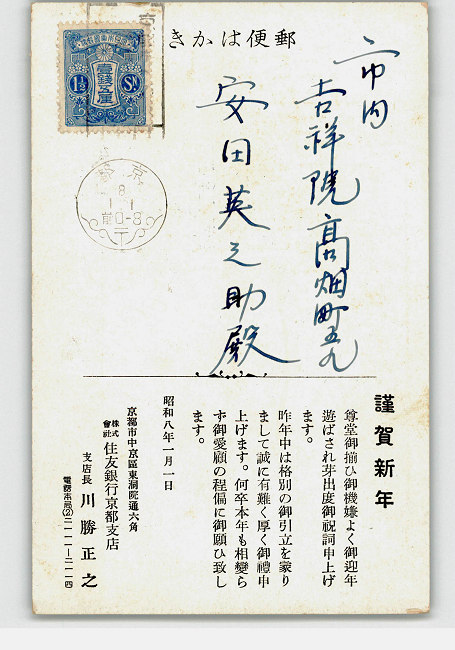 郵便はかき
壹錢五厘
1½ Sn
京都
8
1.1
前0-8
市内
吉祥院高畑町五九
安田英之助殿
謹賀新年
尊堂御揃ひ御機嫌よく御迎年
遊ばされ芽出度御祝詞申上げ
ます。
昨年中は格別の御引立を蒙り
まして誠に有難く厚く御禮申
上げます。何卒本年も相變ら
ず御愛顧の程偏に御願ひ致し
ます。
昭和八年一月一日
京都市中京區東洞院通六角
株式會社住友銀行京都支店
支店長 川勝正之
電話本局(2)二一一一―二一一四